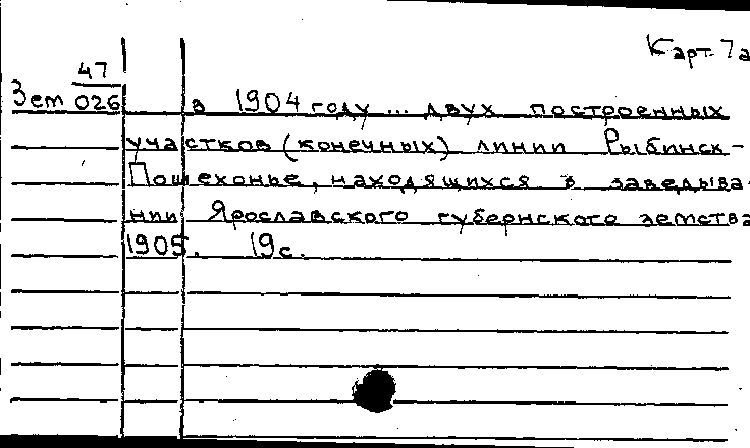 Карт. 7а
47
Зем 026
в 1904 году ... двух построенных
участков (конечных) линии Рыбинск-
Пошехонье, находящихся в заведыва-
нии Ярославского губернского земства
1905. 19с.